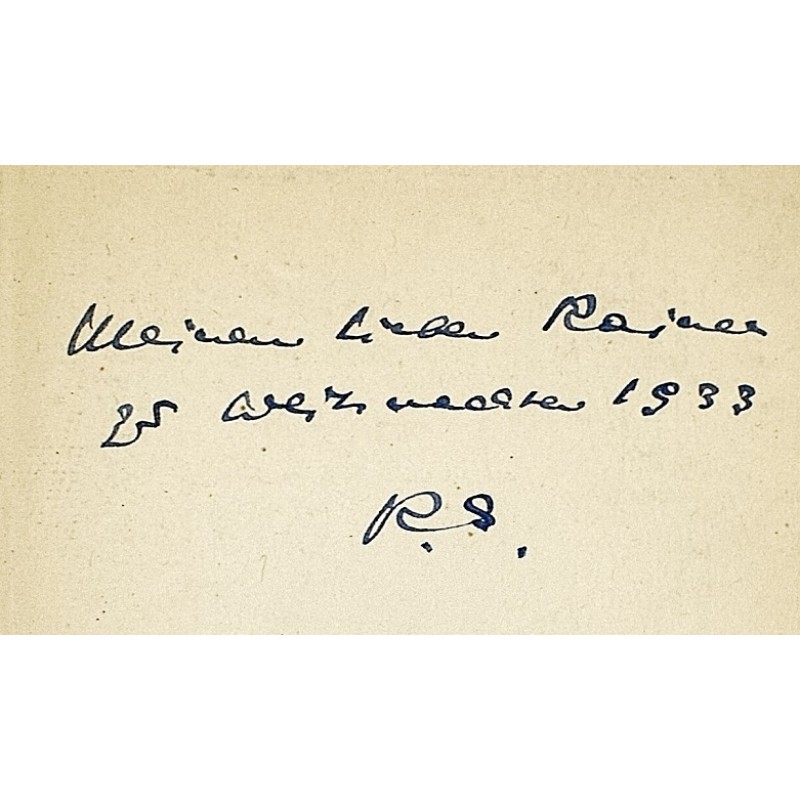 Meinem lieben Rainer
zu Weihnachten 1933
R. S.